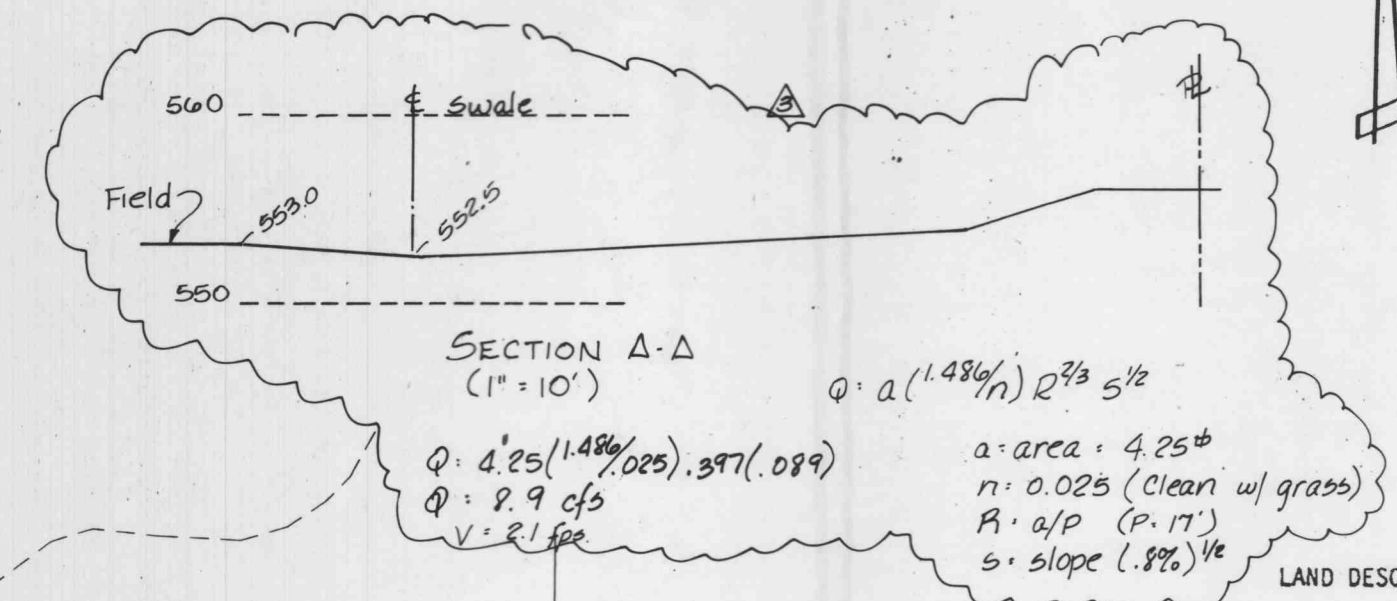 560
℄ Swale
3
⅊
Field
553.0
552.5
550
SECTION A-A
(1" = 10')
Q: a(1.486/n) R^2/3 S^1/2
Q: 4.25(1.486/.025).397(.089)
Q: 8.9 cfs
V = 2.1 fps.
a: area: 4.25
n: 0.025 (Clean w/ grass)
R: a/P (P: 17')
S: slope (.8%)^1/2
LAND DESC